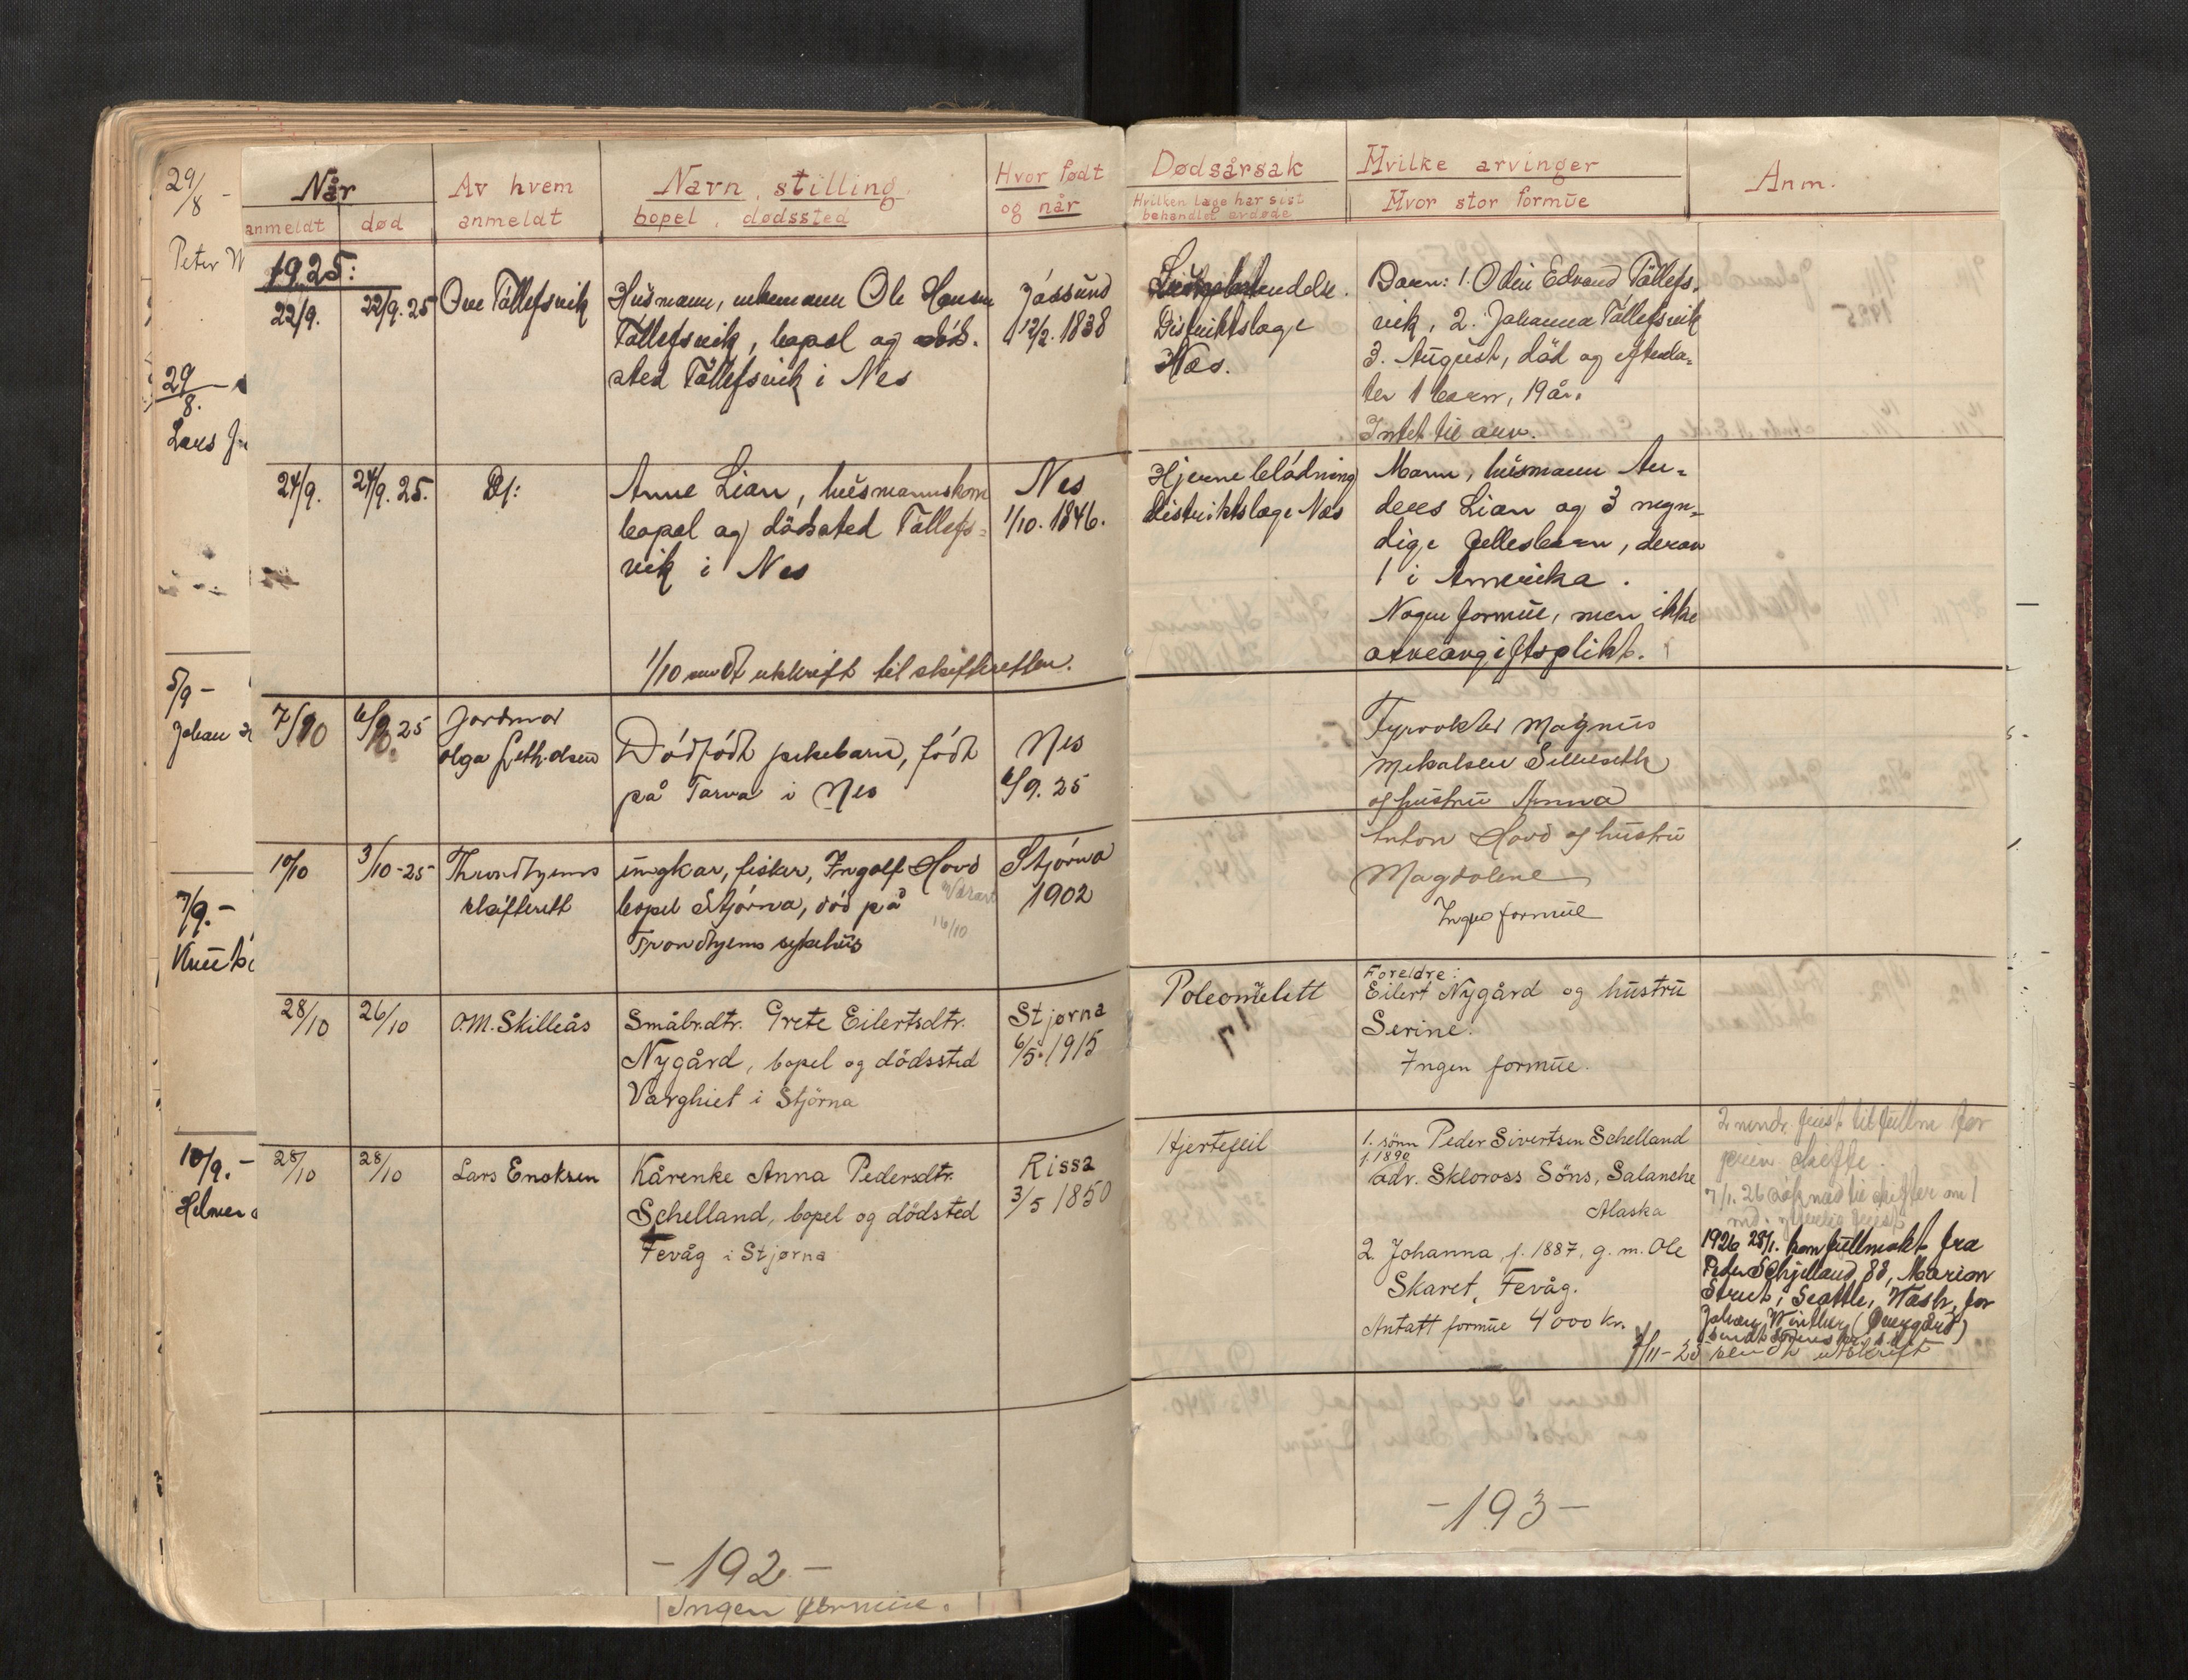 29/8 -
Peter
29/8. -
Lars
5/9 -
Johan
7/9. -
10/9. -
Helmer
Når
anmeldt
død
Av hvem
anmeldt
Navn, stilling
bopel, dødssted
Hvor født
og når
1925:
22/9.
22/9. 25
Ove Tøllefsvik
Husmann, enkemann Ole Hansen
Tøllefsvik, bopel og død-
sted Tøllefsvik i Nes
Jøssund
12/2. 1838
24/9.
24/9. 25.
Df:
Anne Lian, husmannskone
bopel og dødssted Tøllefs-
vik i Nes
Nes
1/10. 1846.
1/10 sendt utskrift til skifteretten.
7/10
6/9. 25
Jordmor
Olga
Dødfødt pikebarn, født
på Tarva i Nes
Nes
6/9. 25
10/10
3/10-25
Throndhjems
skifterett
ungkar, fisker, Ingolf Hovd
bopel Stjørna, død på
Trondhjems sykehus
16/10
Stjørna
1902
28/10
26/10
O.M. Skilleås
Småbr.dtr. Grete Eilertsdtr.
Nygård, bopel og dödssted
Varghiet i Stjørna
Stjørna
6/5. 1915
28/10
28/10
Lars Enoksen
Kårenke Anna Pedersdtr.
Schelland, bopel og dödsted
Fevåg i Stjørna
Rissa
3/5 1850
- 192 -
Ingen formue.
Dødsårsak
Hvilken læge har sist
behandlet avdøde
Hvilke arvinger
Hvor stor formue
Anm.
Distriktslæge
Næs.
Barn: 1. Odin Edvard Tøllefs-
vik, 2. Johanna Tøllefsvik
3. August, död og efterla-
ter 1 barn, 19 år.
Intet til arv.
Hjerneblødning
distriktslæge Næs
Mann, husmann An-
dreas Lian og 3 myn-
dige fellesbarn, derav
1 i Amerika.
Nogen formue, men ikke
arveavgiftsplikt.
Fyrvokter Magnus
Mikalsen Selleseth
og hustru Anna
Anton Hovd og hustru
Magdalene
Ingen formue
Poleomilitt
Foreldre:
Eilert Nygård og hustru
Serine.
Ingen formue.
Hjertefeil
1. sønn Peder Sivertsen Schelland
f. 1890
adr. Skloross Söns, Salanche
Alaska
2. Johanna, f. 1887, g. m. Ole
Skaret, Fevåg.
Antatt formue 4000 kr.
2 mndr. frist til fullm for
7/1. 26
1926 28/1. kom fullmakt fra
Peder Schjelland, 88, Marion
Street, Seattle, Wash, for
Johan Winther
7/11-25 sendt utskrift
- 193 -